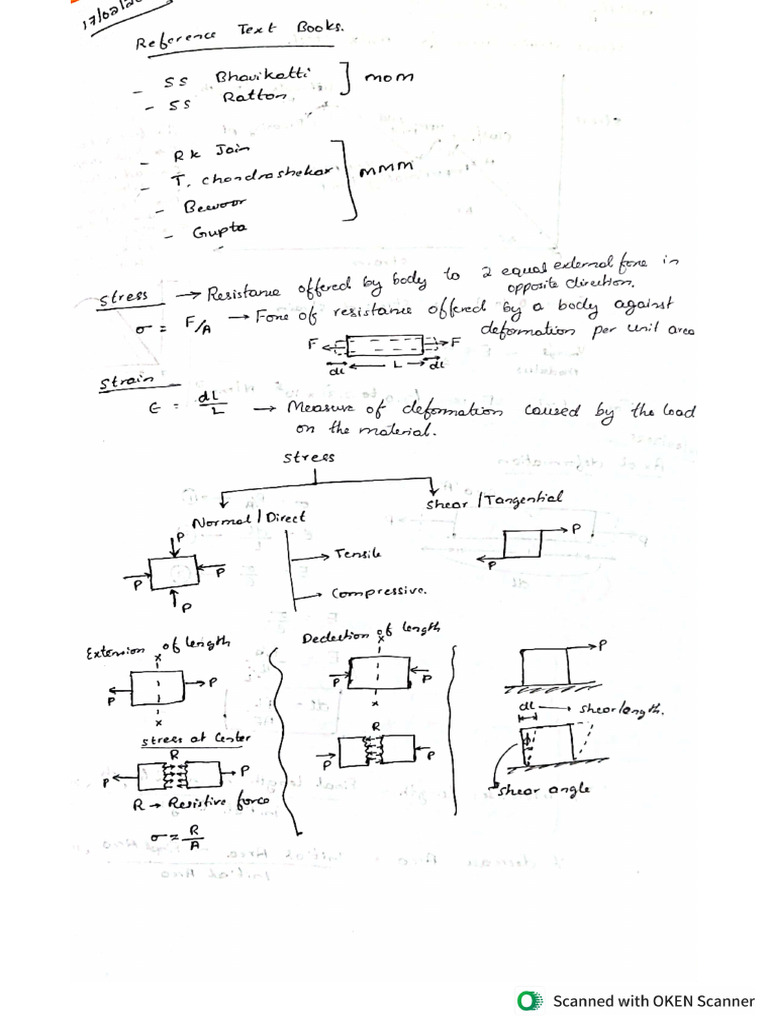 17/02/20
Reference Text Books.
- SS Bhavikatti
- SS Rattan
] MOM
- RK Jain
- T. Chandrashekar
- Bewoor
- Gupta
] MMM
Stress → Resistance offered by body to 2 equal external force in opposite direction.
σ = F/A → Force of resistance offered by a body against deformation per unit area
F F
dL L dL
Strain
ε = dL/L → Measure of deformation caused by the load
on the material.
Stress
Normal / Direct
Shear / Tangential
P P P P
→ Tensile
→ Compressive.
P P
Extension of length
Deduction of length
x x
P P
P P
P
x x
dL → shear length.
Stress at Center
R R
P P
P P
ϕ
R → Resistive force
shear angle
σ = R/A
Scanned with OKEN Scanner